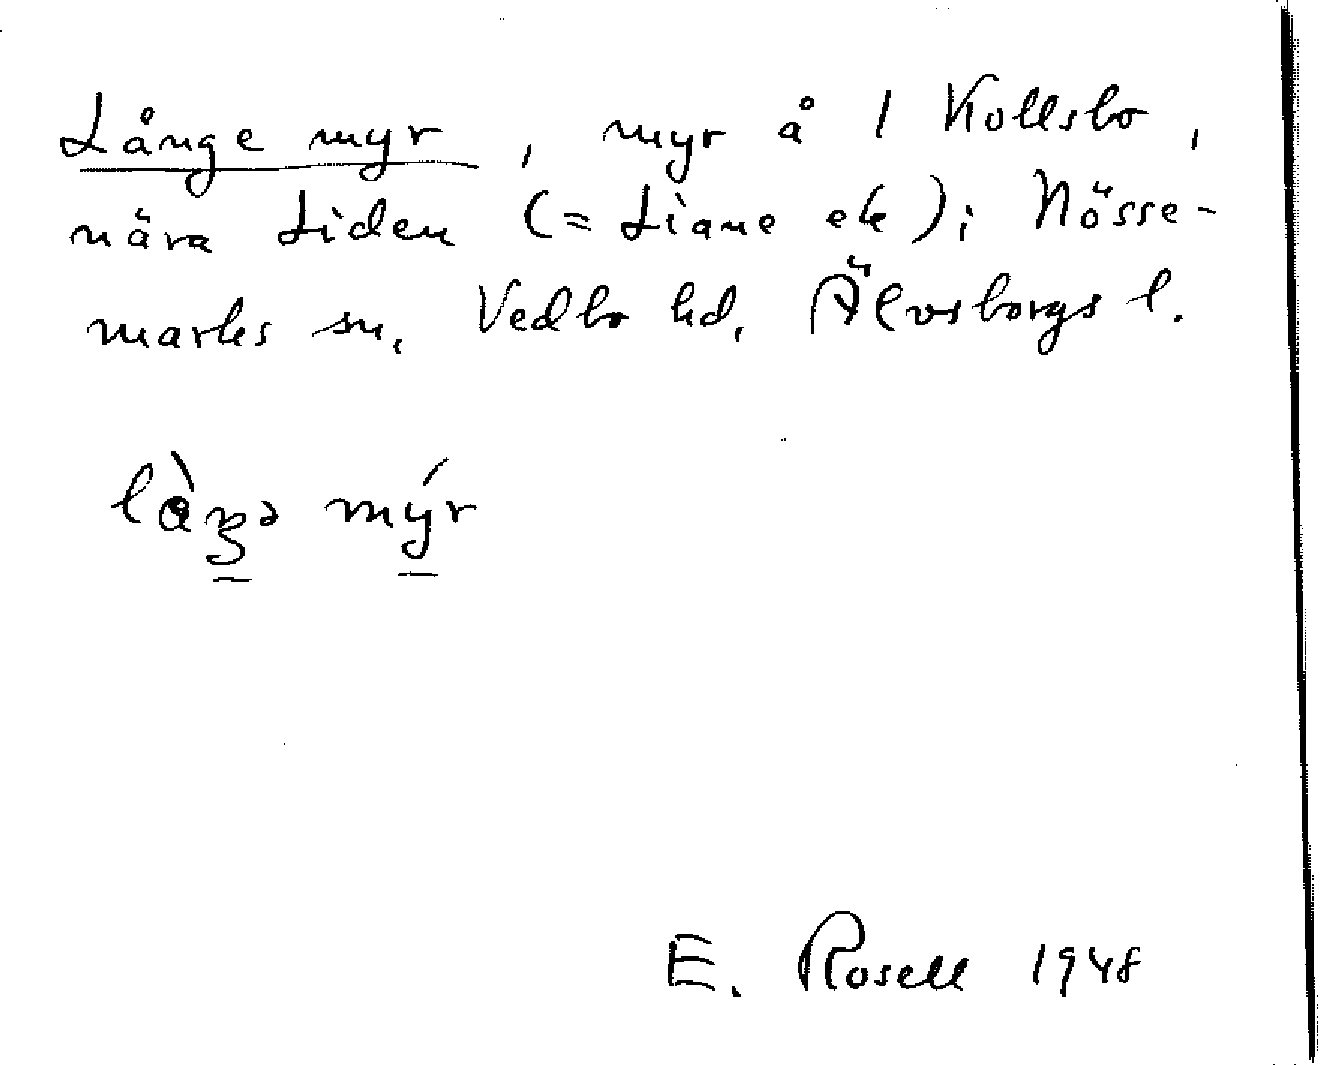 Långe myr, myr å 1 Kollsbo,
nära Liden (= Liane ek); Nösse-
marks sn, Vedbo hd, Älvsborgs l.
mýr
E. Rosell 1948